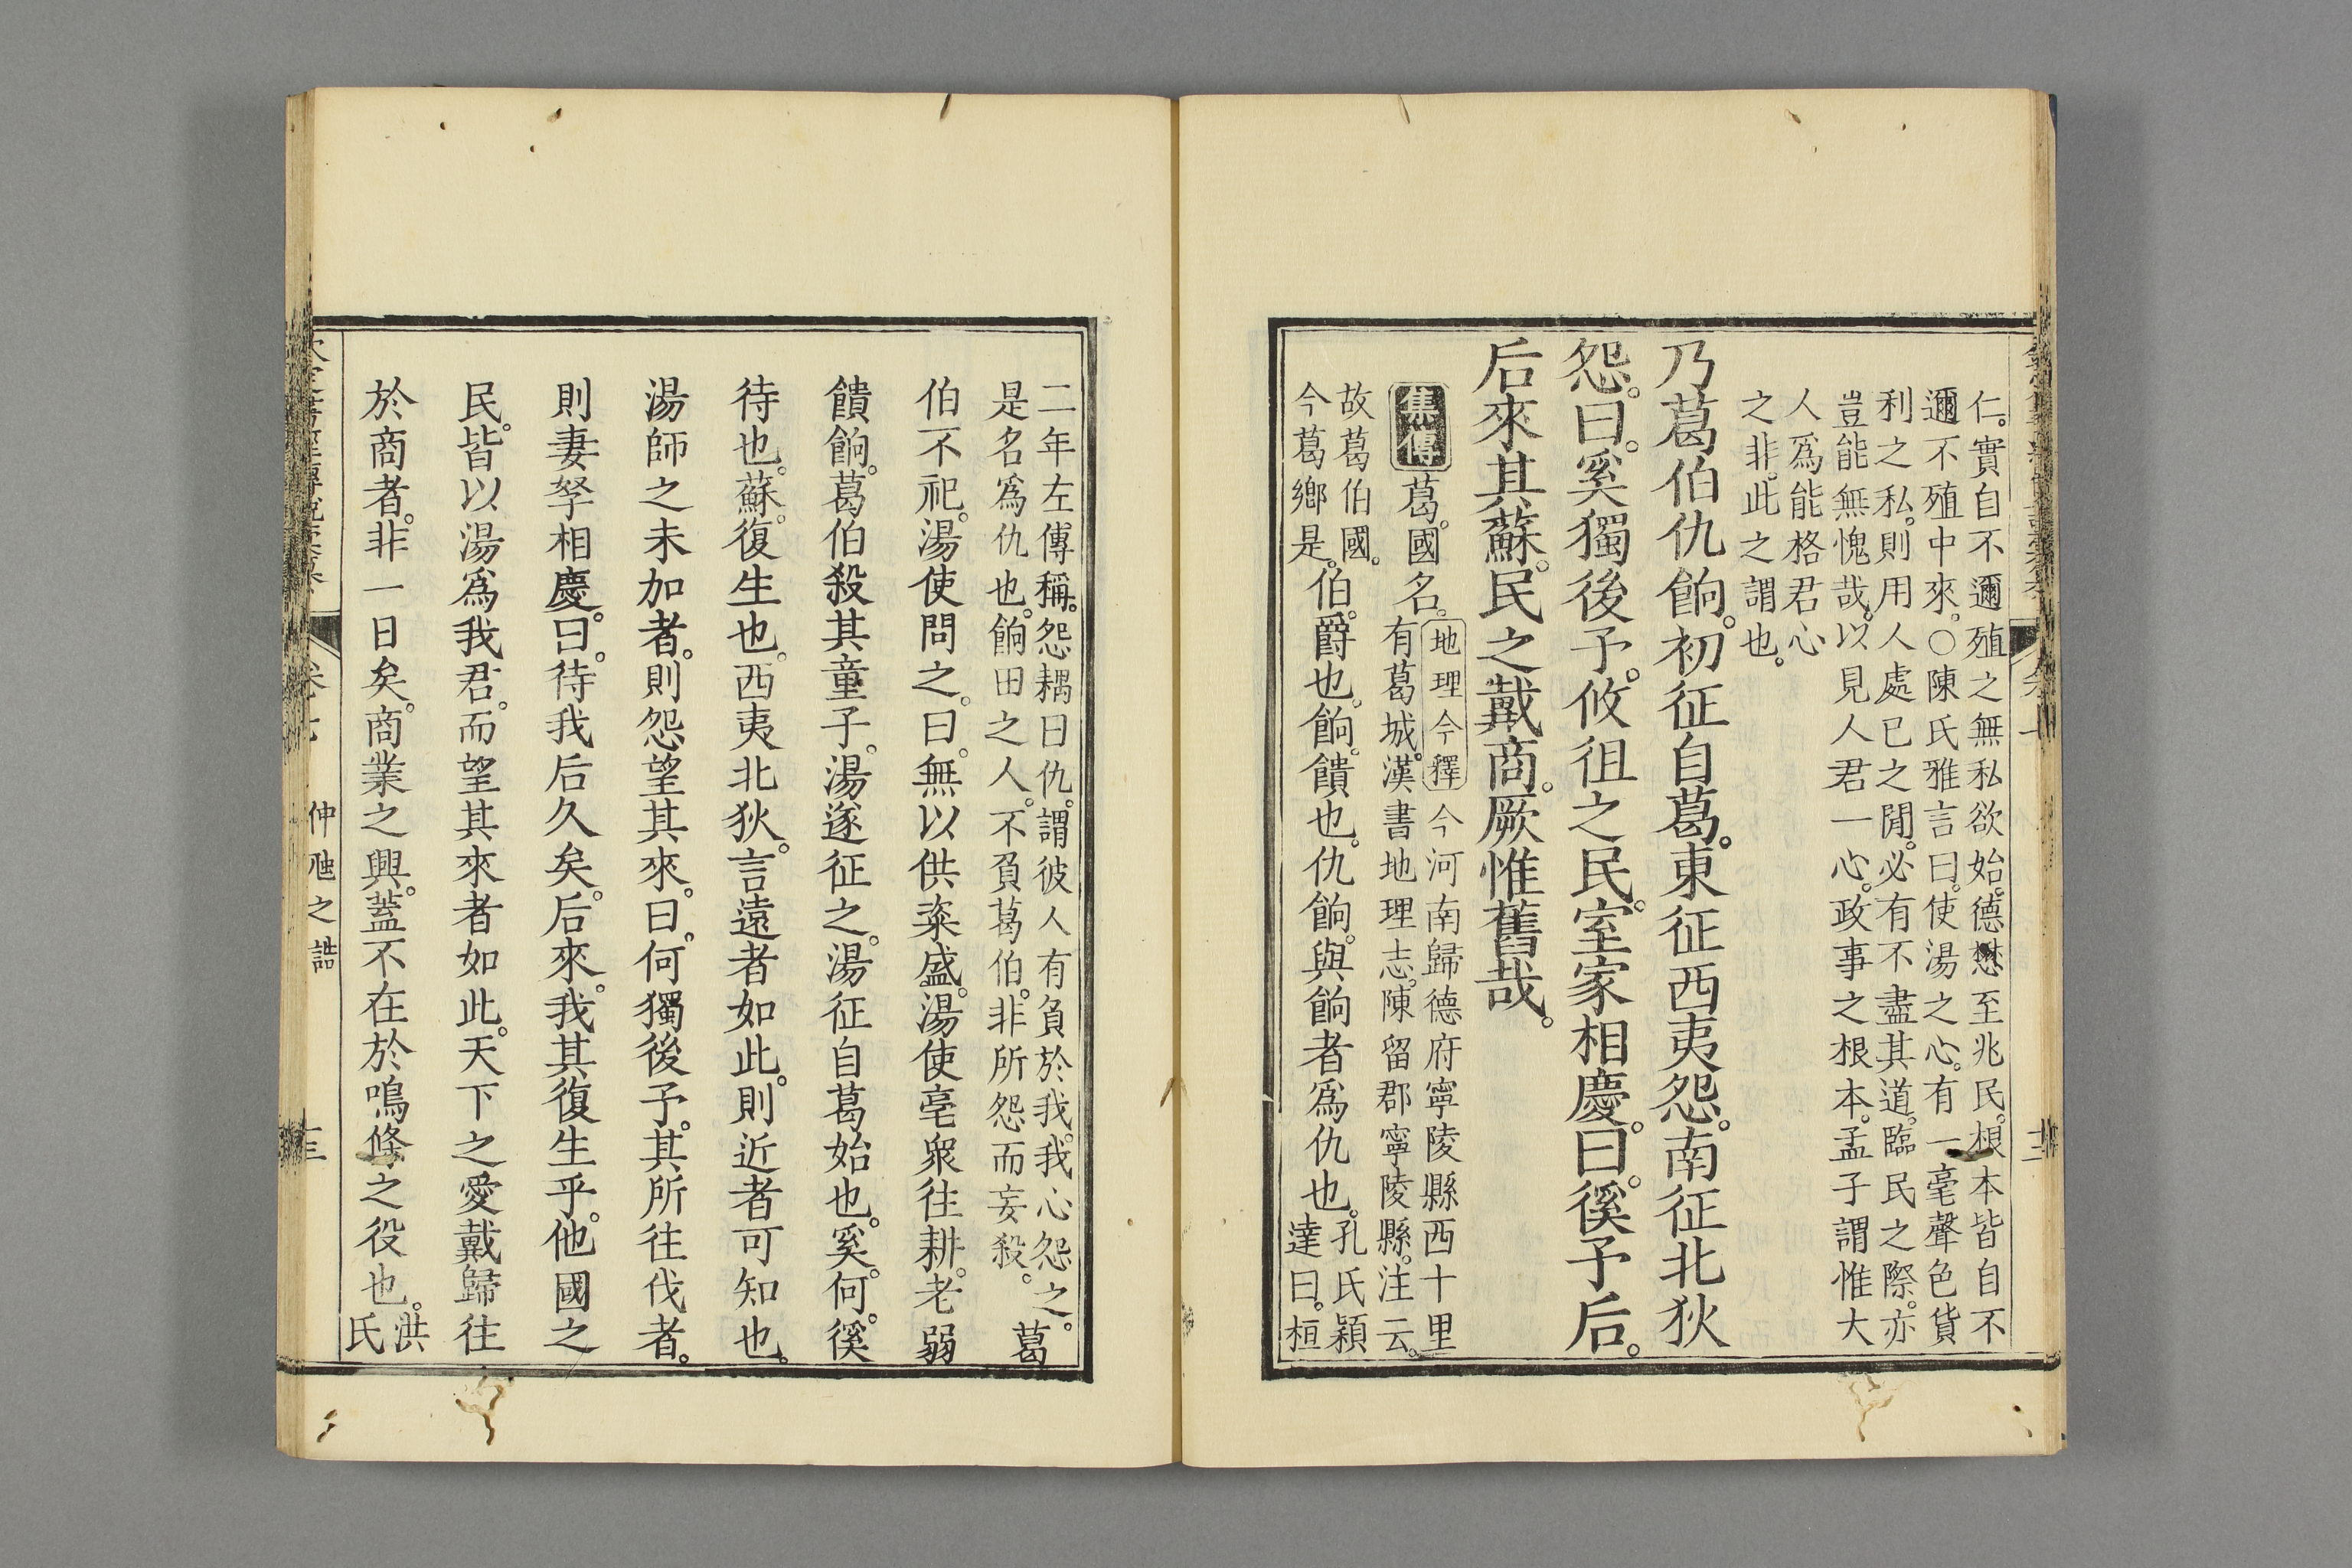 仁。實自不邇殖之無私欲始。德懋至兆民。根本皆自不
邇不殖中來。○陳氏雅言曰。使湯之心。有一毫聲色貨
利之私。則用人處已之閒。必有不盡其道。臨民之際。亦
豈能無愧哉。以見人君一心。政事之根本。孟子謂惟大
人爲能格君心
之非。此之謂也。
乃葛伯仇餉。初征自葛。東征西夷怨。南征北狄
怨。曰。奚獨後予。攸徂之民。室家相慶。曰。徯予后。
后來其蘇。民之戴商。厥惟舊哉。
集傳葛。國名。地理今釋今河南歸德府寧陵縣西十里
有葛城。漢書地理志。陳留郡寧陵縣。注云。
故葛伯國。
今葛鄉是。伯。爵也。餉。饋也。仇餉。與餉者爲仇也。孔氏穎
達曰。桓
二年左傳稱。怨耦曰仇。謂彼人有負於我。我心怨之。
是名爲仇也。餉田之人。不負葛伯。非所怨而妄殺。葛
伯不祀。湯使問之。曰。無以供粢盛。湯使亳衆往耕。老弱
饋餉。葛伯殺其童子。湯遂征之。湯征自葛始也。奚。何。徯
待也。蘇。復生也。西夷北狄。言遠者如此。則近者可知也。
湯師之未加者。則怨望其來。曰。何獨後予。其所往伐者。
則妻孥相慶。曰。待我后久矣。后來。我其復生乎。他國之
民。皆以湯爲我君。而望其來者如此。天下之愛戴歸往
於商者。非一日矣。商業之興。蓋不在於鳴條之役也。洪
氏
卷七
仲虺之誥